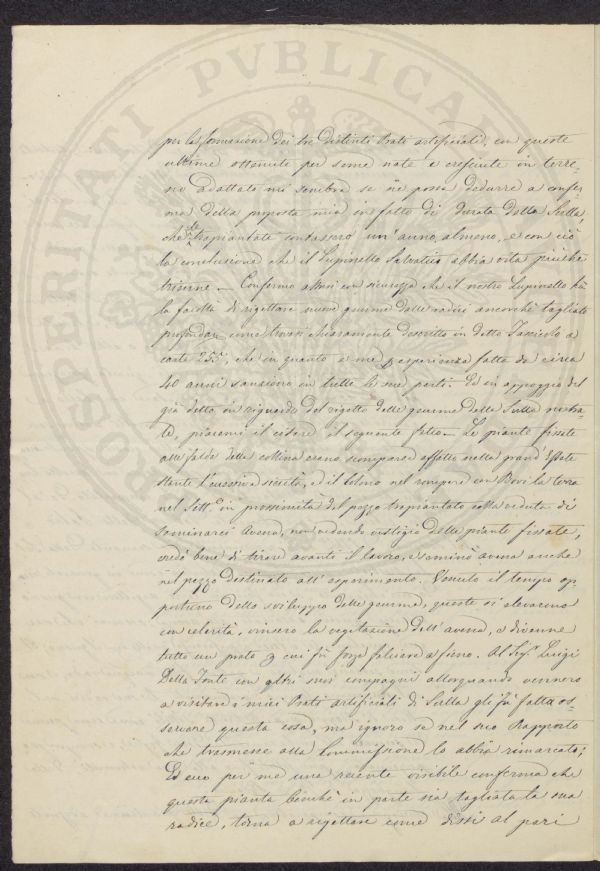 PROSPERITATI PVBLICAE
per la formazione dei tre distinti Prati artificiali, con queste
ultime ottenute per seme nate e cresciute in terre-
no adattato mi sembra se ne possa dedurre a confer-
ma della proposta mia in fatto di durata della Sulla,
che le trapiantate contassero un'anno almeno, e con ciò
la conclusione che il Lupinello Salvatico abbia vita più che
trienne — Confermo altresì con sicurezza che il nostro Lupinello ha
la facoltà di rigettare nuove gemme dalle radici ancorchè tagliate
profondam. come trovasi chiaramente descritto in detto Fascicolo a
carte 255, che in quanto a me l'esperienza fatta da circa
40 anni sanziona in tutte le sue parti. Ed in appoggio del
già detto in riguardo del rigetto delle gemme della Sulla nostra-
le, piacemi il citare il seguente fatto — Le piante fissate
alle falde della collina erano scomparse affatto nella grand'Estate
stante l'eccessiva siccità, ed il Colono nel rompere con Bovi la terra
nel Sett.e in prossimità del pezzo trapiantato colla veduta di
seminarci Avena, non vedendo vestigio delle piante fissate,
credè bene di tirare avanti il lavoro, e seminò avena anche
nel pezzo destinato all'esperimento. Venuto il tempo op-
portuno dello sviluppo delle gemme, queste si elevarono
con celerità, vinsero la vegetazione dell'avena, e divenne
tutto un prato per cui fù forza falciare a fieno. Al Sig. Luigi
Della Fonte con altri suoi compagni allorquando vennero
a visitare i miei Prati artificiali di Sulla gli fù fatta os-
servare questa cosa, ma ignoro se nel suo Rapporto
che trasmesse alla Commissione lo abbia rimarcato;
Ed ecco per me una recente visibile conferma che
questa pianta benchè in parte sia tagliata la sua
radice, torna a rigettare come dissi al pari